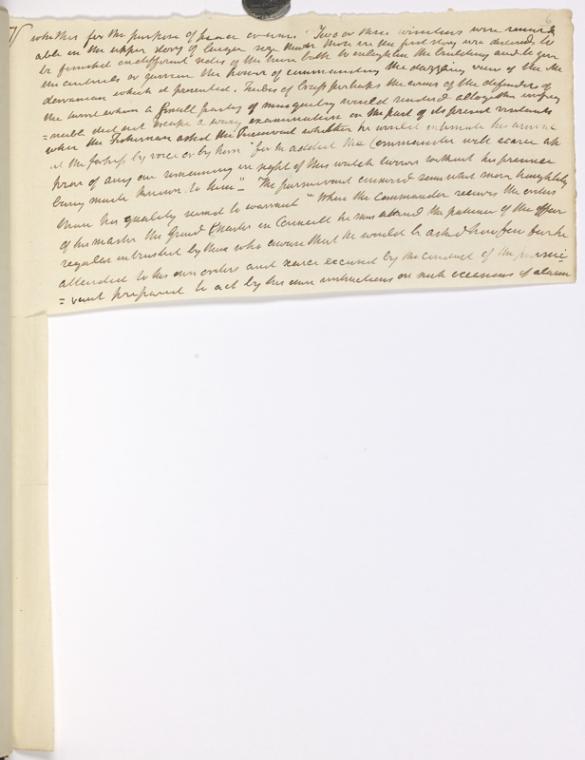 6
whether for the purpose of peace or war. Two or three windows were remark
able in the upper story of larger size than those in the first story were destined to
be finished on different sides of the tower both to enlighten the building and to give
the or the power of commanding the dazzling view of the Me
diterranean which it presented. of perhaps the arms of the defenders of
the tower whom a small party of musquetry would rendered altogether
did not escape a wary examination on the part of its present
when the Fisherman asked the Pursuivant whether he would intimate his arrival
at the fortress by voice or by horn "for he added the Commander will scarce ap
prove of any one remaining in sight of this watch tower without his presence
being made known to him" – The pursuivant answered somewhat more haughtily
than his quality seemed to warrant "When the Commander receives the orders
of his master the Grand Master in Council he may attend the patience of the officer
regular intrusted by those who aware that he would be asked how far he
attended to his own orders and scarce excused by the conduct of the pursui
= vant prepared to act by his own instructions on such occasions of alarm